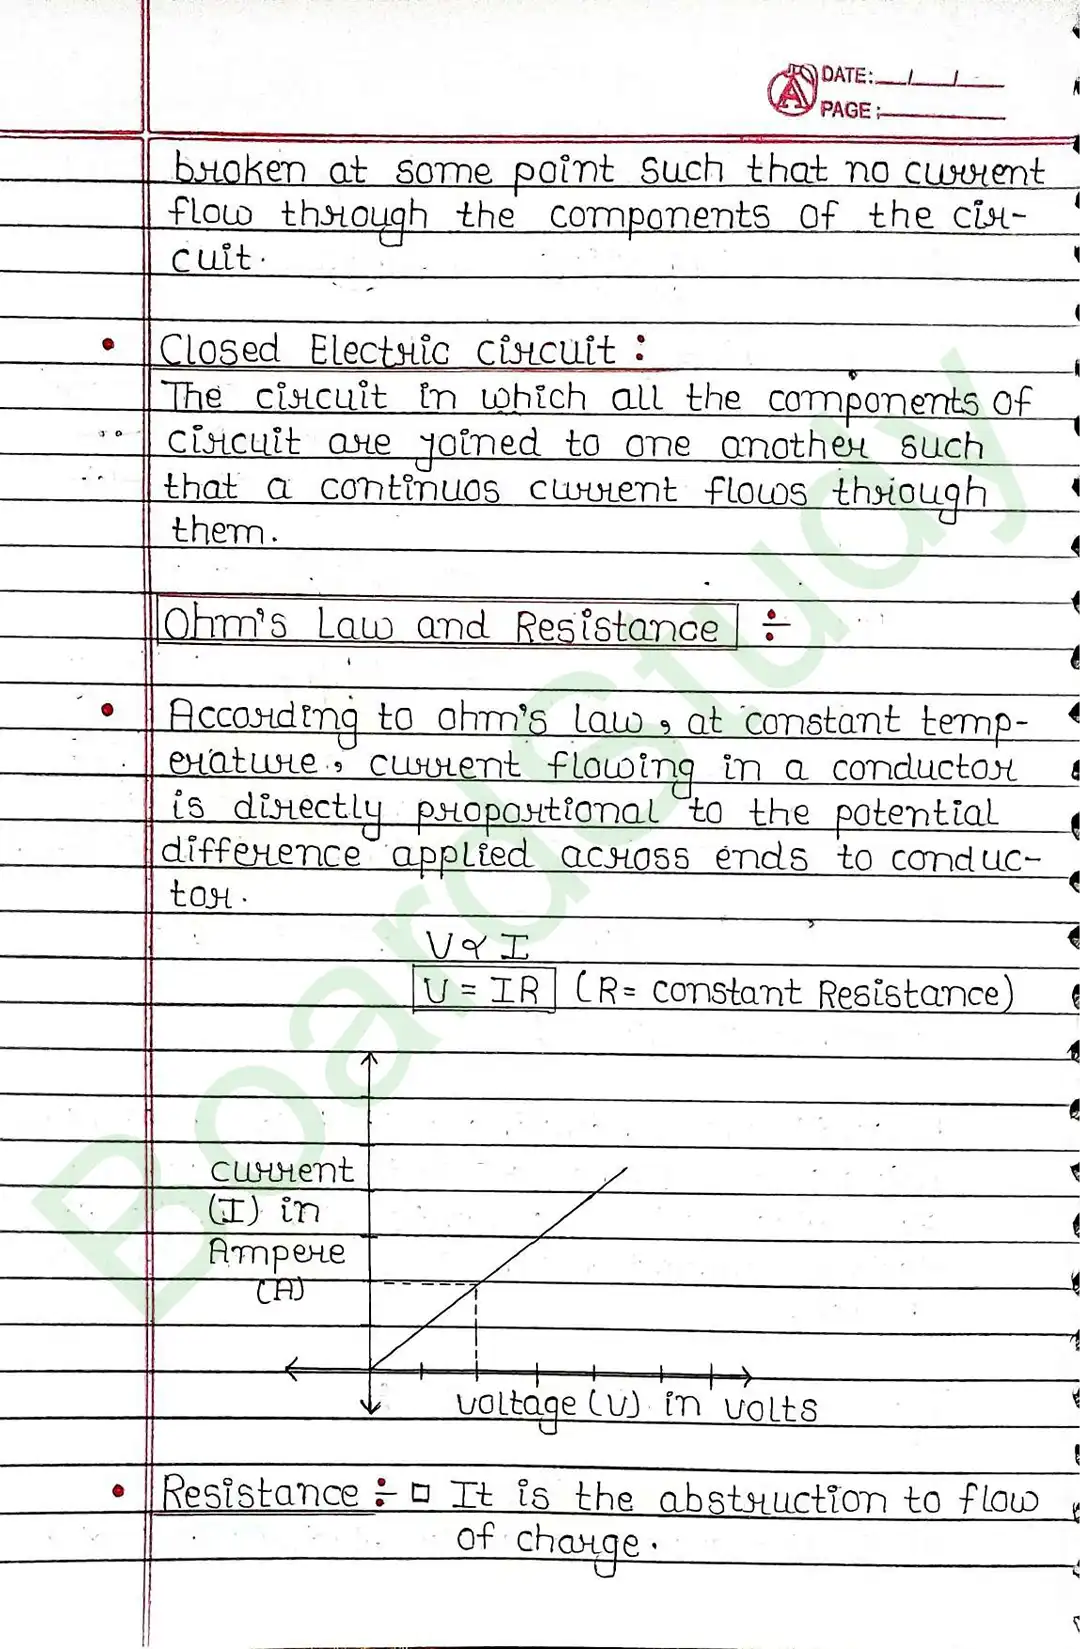 DATE: __/__/__
PAGE:
broken at some point such that no current
flow through the components of the cir-
cuit.
• Closed Electric circuit:
The circuit in which all the components of
circuit are joined to one another such
that a continuos current flows through
them.
Ohm's Law and Resistance ÷
• According to ohm's law, at constant temp-
erature, current flowing in a conductor
is directly proportional to the potential
difference applied across ends to conduc-
tor.
V ∝ I
V = IR (R = constant Resistance)
current
(I) in
Ampere
(A)
voltage (V) in volts
• Resistance ÷ □ It is the abstruction to flow
of charge.
BoardStudy